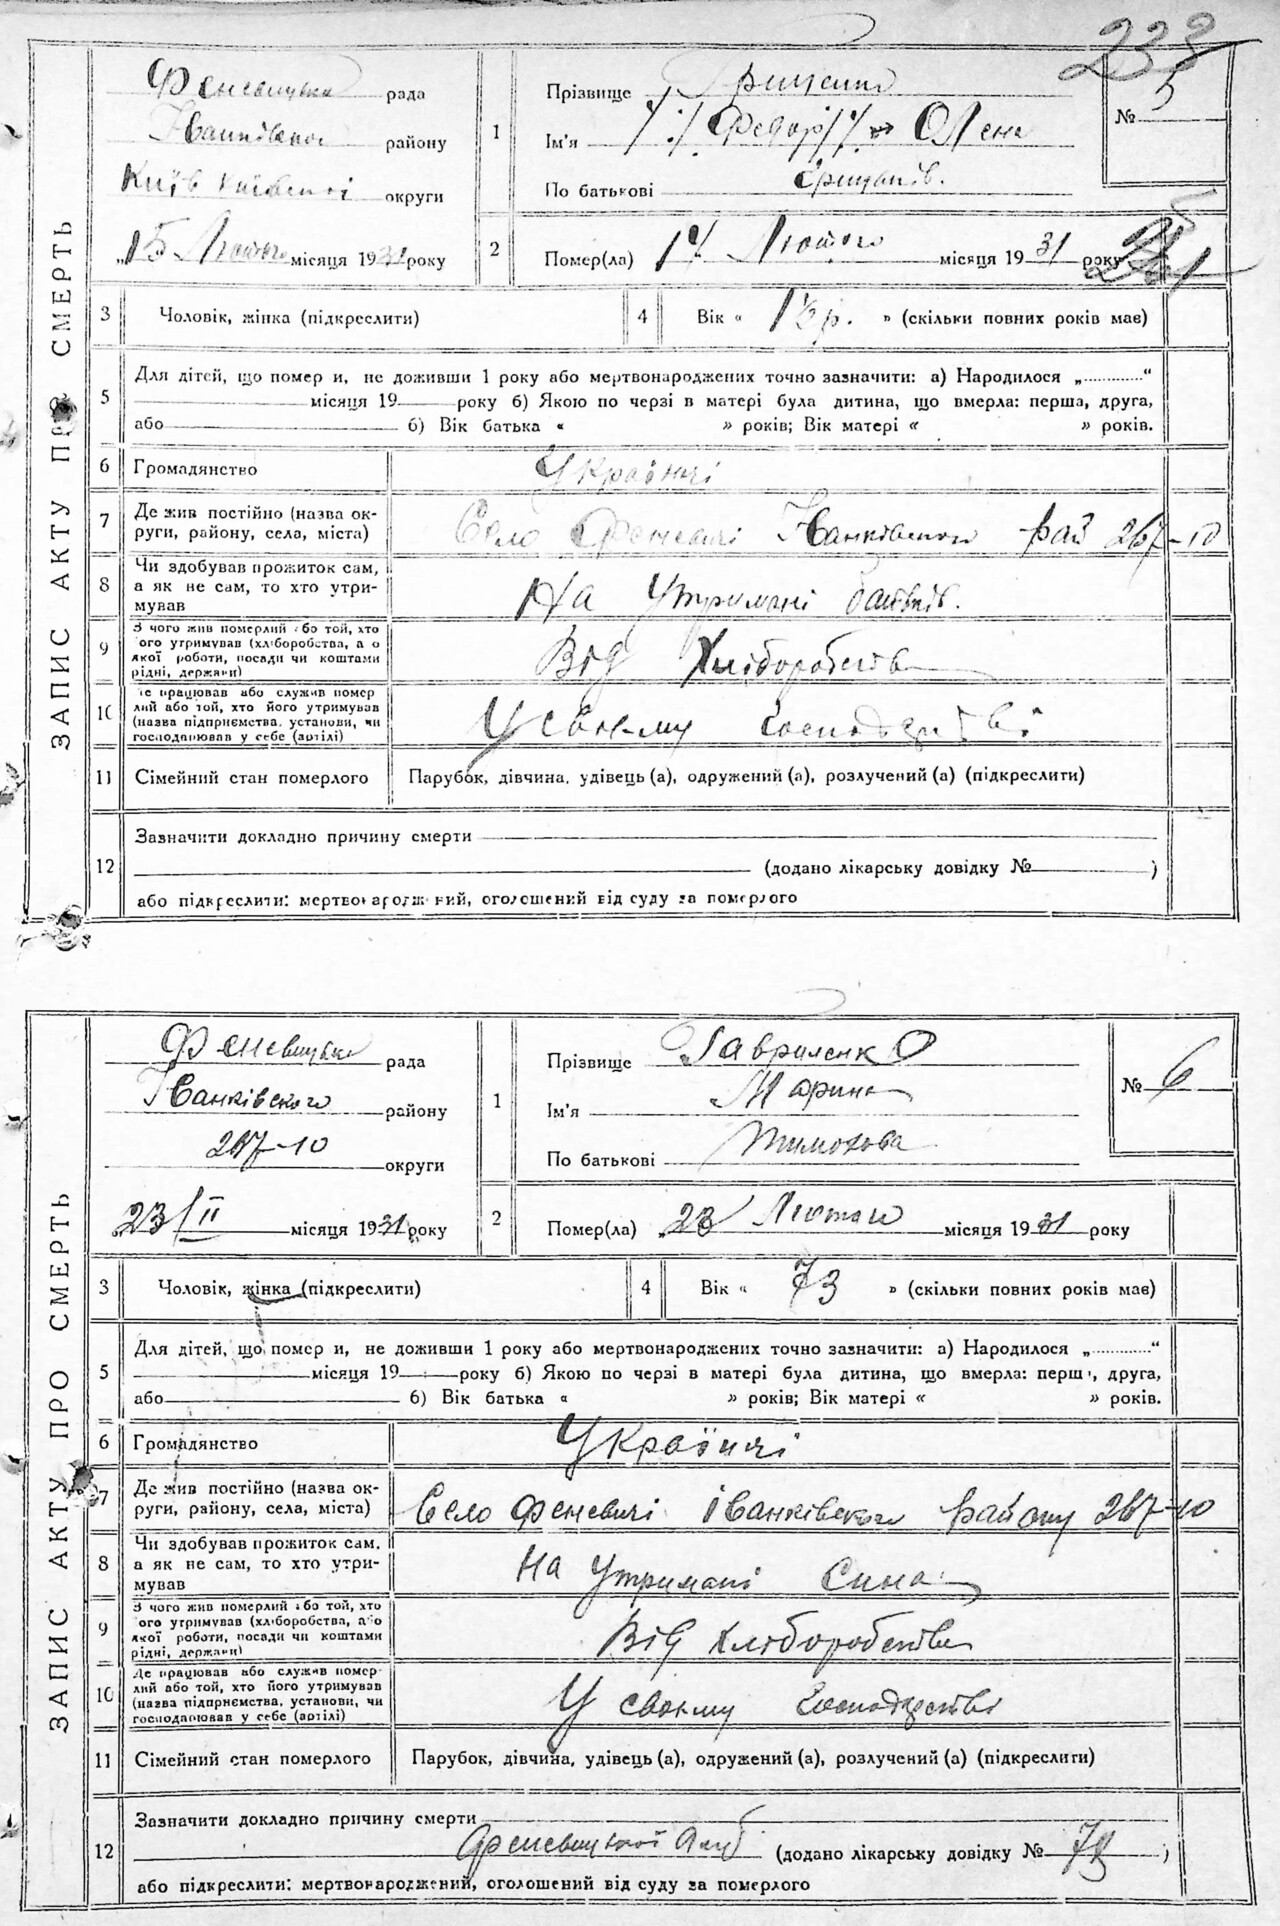 238
ЗАПИС АКТУ ПРО СМЕРТЬ
Феневицька рада
Іванківского району
Київ київської округи
„15 Лютого місяця 1931 року
1
Прізвище Грищенко
Ім'я Федор Олена
По батькові Грицьків.
№ 5
2
Помер(ла) 14 Лютого місяця 1931 року
3 Чоловік, жінка (підкреслити)
4 Вік « 1½ р. » (скільки повних років має)
5
Для дітей, що померли, не доживши 1 року або мертвонароджених точно зазначити: а) Народилося „............“
місяця 19 року б) Якою по черзі в матері була дитина, що вмерла: перша, друга,
або б) Вік батька « » років; Вік матері « » років.
6 Громадянство Українці
7 Де жив постійно (назва ок-
руги, району, села, міста) Село Феневичі Іванківского рай 267-10
8 Чи здобував прожиток сам,
а як не сам, то хто утри-
мував На утримані батьків.
9 З чого жив померлий або той, хто
його утримував (хліборобства, або
якої роботи, посади чи коштами
рідні, держави) Від Хліборобства
10 Де працював або служив помер
лий або той, хто його утримував
(назва підприємства, установи, чи
господарював у себе (артілі) У своєму господарстві
11 Сімейний стан померлого Парубок, дівчина, удівець (а), одружений (а), розлучений (а) (підкреслити)
12 Зазначити докладно причину смерти
(додано лікарську довідку № )
або підкреслити: мертвонароджений, оголошений від суду за померлого
ЗАПИС АКТУ ПРО СМЕРТЬ
Феневицька рада
Іванківского району
267-10 округи
„23/II місяця 1931 року
1
Прізвище Гавриленко
Ім'я Марина
По батькові Тимохова
№ 6
2
Помер(ла) „23 Лютого місяця 1931 року
3 Чоловік, жінка (підкреслити)
4 Вік « 73 » (скільки повних років має)
5
Для дітей, що померли, не доживши 1 року або мертвонароджених точно зазначити: а) Народилося „............“
місяця 19 року б) Якою по черзі в матері була дитина, що вмерла: перша, друга,
або б) Вік батька « » років; Вік матері « » років.
6 Громадянство Українці
7 Де жив постійно (назва ок-
руги, району, села, міста) Село Феневичі Іванківского району 267-10
8 Чи здобував прожиток сам,
а як не сам, то хто утри-
мував На утримані Сина
9 З чого жив померлий або той, хто
його утримував (хліборобства, або
якої роботи, посади чи коштами
рідні, держави) Від хліборобства
10 Де працював або служив помер-
лий або той, хто його утримував
(назва підприємства, установи, чи
господарював у себе (артілі) У своєму господарстві
11 Сімейний стан померлого Парубок, дівчина, удівець (а), одружений (а), розлучений (а) (підкреслити)
12 Зазначити докладно причину смерти
Феневицької Амб (додано лікарську довідку № 78 )
або підкреслити: мертвонароджений, оголошений від суду за померлого